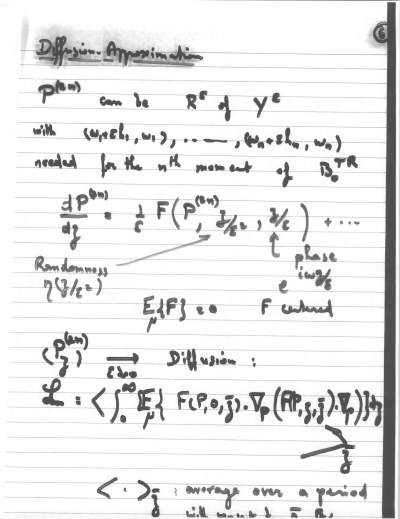 6
Diffusion-Approximation
P^(2n) can be R^ε of Y^ε
with (ω₁+εh₁, ω₁), ..., (ωₙ+εhₙ, ωₙ)
needed for the nth moment of B₀^TR
dP^(2n)/dz = 1/ε F(P^(2n), z/ε², z/ε) + ...
Randomness
η(z/ε²)
phase
e^(iωz/ε)
E_μ{F} = 0 F centered
(P_z^(2n)) → ε↓0 Diffusion :
L = < ∫₀^∞ E_μ{ F(P,0,z̄).∇_P (F(P,z,z̄).∇_P)} dz >_z̄
< · >_z̄ : average over a period